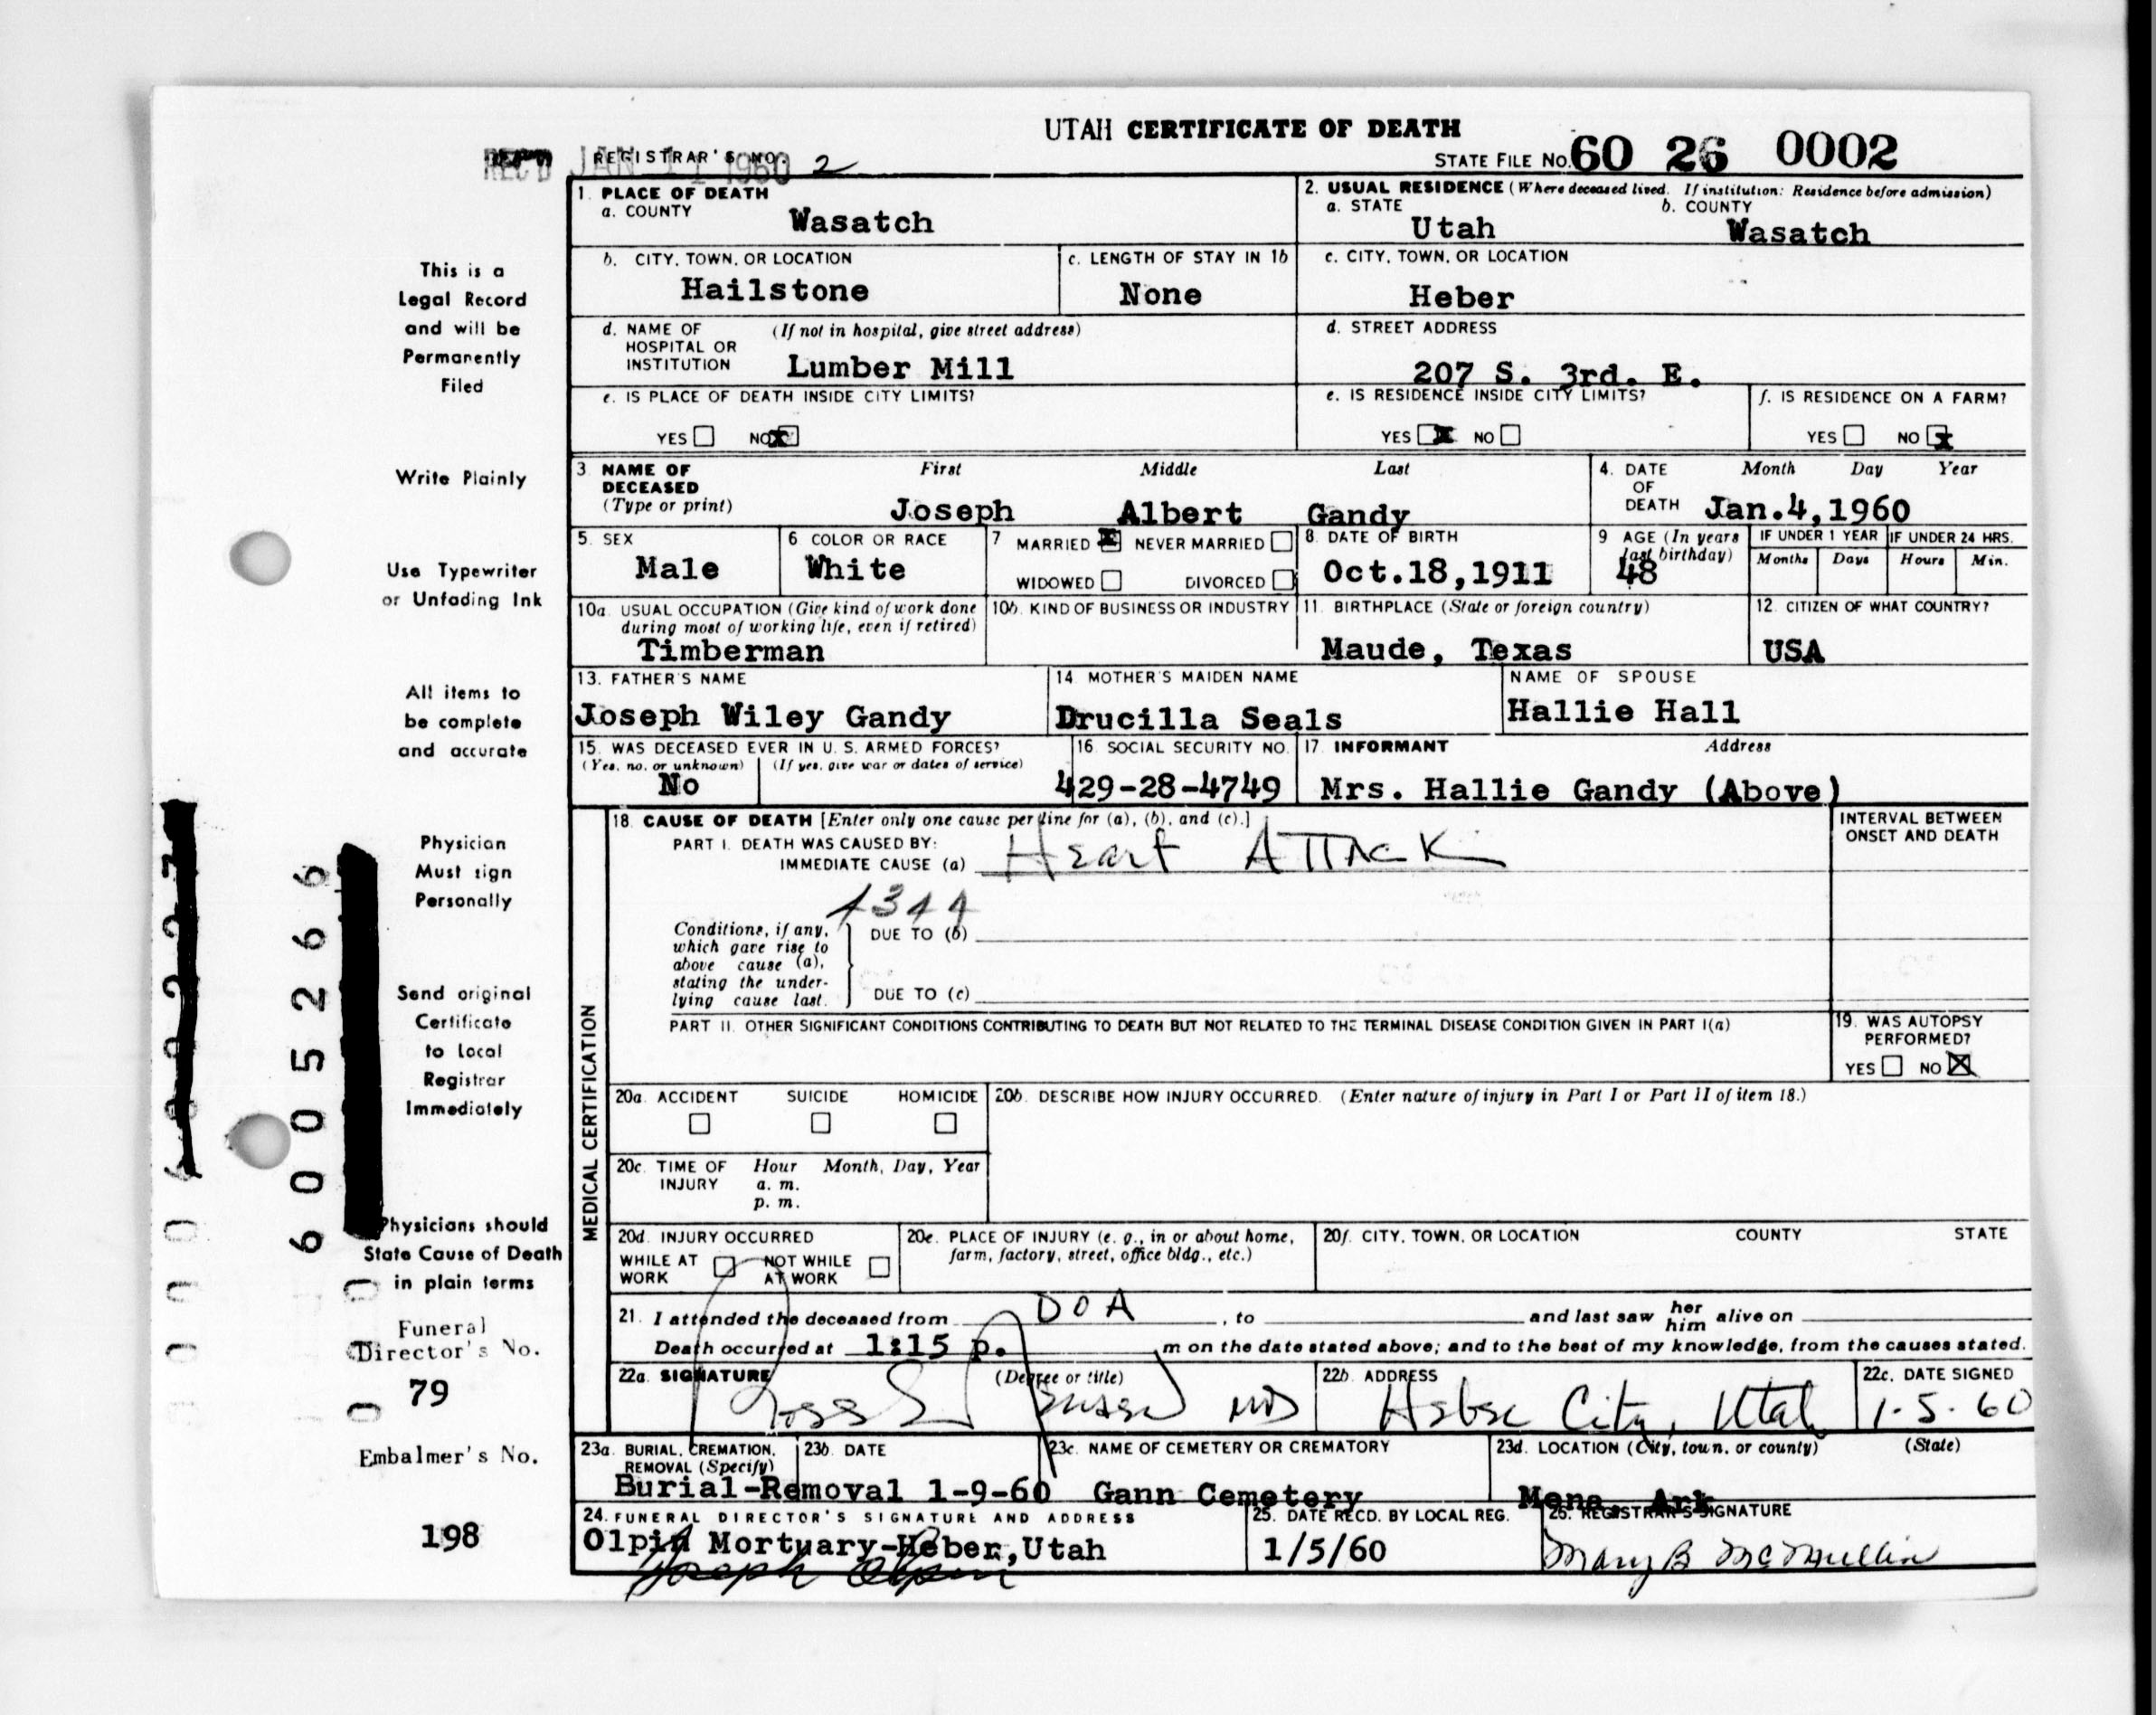 UTAH CERTIFICATE OF DEATH
REC'D JAN 11 1960
REGISTRAR'S NO. 2
STATE FILE NO. 60 26 0002
1. PLACE OF DEATH
a. COUNTY
Wasatch
2. USUAL RESIDENCE (Where deceased lived. If institution: Residence before admission)
a. STATE b. COUNTY
Utah Wasatch
b. CITY, TOWN, OR LOCATION
Hailstone
c. LENGTH OF STAY IN 1b
None
c. CITY, TOWN, OR LOCATION
Heber
d. NAME OF (If not in hospital, give street address)
HOSPITAL OR
INSTITUTION Lumber Mill
d. STREET ADDRESS
207 S. 3rd. E.
e. IS PLACE OF DEATH INSIDE CITY LIMITS?
YES NO x
e. IS RESIDENCE INSIDE CITY LIMITS?
YES x NO
f. IS RESIDENCE ON A FARM?
YES NO x
3. NAME OF DECEASED
(Type or print)
First Middle Last
Joseph Albert Gandy
4. DATE OF DEATH
Month Day Year
Jan.4,1960
5. SEX
Male
6 COLOR OR RACE
White
7 MARRIED x NEVER MARRIED
WIDOWED DIVORCED
8. DATE OF BIRTH
Oct.18,1911
9 AGE (In years last birthday)
48
IF UNDER 1 YEAR IF UNDER 24 HRS.
Months Days Hours Min.
10a. USUAL OCCUPATION (Give kind of work done
during most of working life, even if retired)
Timberman
10b. KIND OF BUSINESS OR INDUSTRY
11. BIRTHPLACE (State or foreign country)
Maude, Texas
12. CITIZEN OF WHAT COUNTRY?
USA
13. FATHER'S NAME
Joseph Wiley Gandy
14 MOTHER'S MAIDEN NAME
Drucilla Seals
NAME OF SPOUSE
Hallie Hall
15. WAS DECEASED EVER IN U. S. ARMED FORCES?
(Yes, no, or unknown) (If yes, give war or dates of service)
No
16. SOCIAL SECURITY NO.
429-28-4749
17. INFORMANT Address
Mrs. Hallie Gandy (Above)
MEDICAL CERTIFICATION
18. CAUSE OF DEATH [Enter only one cause per line for (a), (b), and (c).]
PART I. DEATH WAS CAUSED BY:
IMMEDIATE CAUSE (a) Heart ATTACK
INTERVAL BETWEEN
ONSET AND DEATH
Conditions, if any,
which gave rise to
above cause (a),
stating the under-
lying cause last.
DUE TO (b)
DUE TO (c)
PART II. OTHER SIGNIFICANT CONDITIONS CONTRIBUTING TO DEATH BUT NOT RELATED TO THE TERMINAL DISEASE CONDITION GIVEN IN PART I(a)
19. WAS AUTOPSY
PERFORMED?
YES NO X
20a. ACCIDENT SUICIDE HOMICIDE
20b. DESCRIBE HOW INJURY OCCURRED. (Enter nature of injury in Part I or Part II of item 18.)
20c. TIME OF INJURY Hour Month, Day, Year
a. m.
p. m.
20d. INJURY OCCURRED
WHILE AT WORK NOT WHILE AT WORK
20e. PLACE OF INJURY (e. g., in or about home,
farm, factory, street, office bldg., etc.)
20f. CITY, TOWN, OR LOCATION COUNTY STATE
21. I attended the deceased from DOA , to and last saw her him alive on
Death occurred at 1:15 p. m on the date stated above; and to the best of my knowledge, from the causes stated.
22a. SIGNATURE (Degree or title)
MD
22b. ADDRESS
Heber City, Utah
22c. DATE SIGNED
1-5-60
23a. BURIAL, CREMATION,
REMOVAL (Specify)
Burial-Removal
23b. DATE
1-9-60
23c. NAME OF CEMETERY OR CREMATORY
Gann Cemetery
23d. LOCATION (City, town, or county) (State)
Mena, Ark
24. FUNERAL DIRECTOR'S SIGNATURE AND ADDRESS
Olpin Mortuary-Heber,Utah
Joseph Olpin
25. DATE RECD. BY LOCAL REG.
1/5/60
26. REGISTRAR'S SIGNATURE
Mary B McMullin
This is a
Legal Record
and will be
Permanently
Filed
Write Plainly
Use Typewriter
or Unfading Ink
All items to
be complete
and accurate
Physician
Must sign
Personally
Send original
Certificate
to Local
Registrar
Immediately
Physicians should
State Cause of Death
in plain terms
Funeral
Director's No.
79
Embalmer's No.
198
6005266